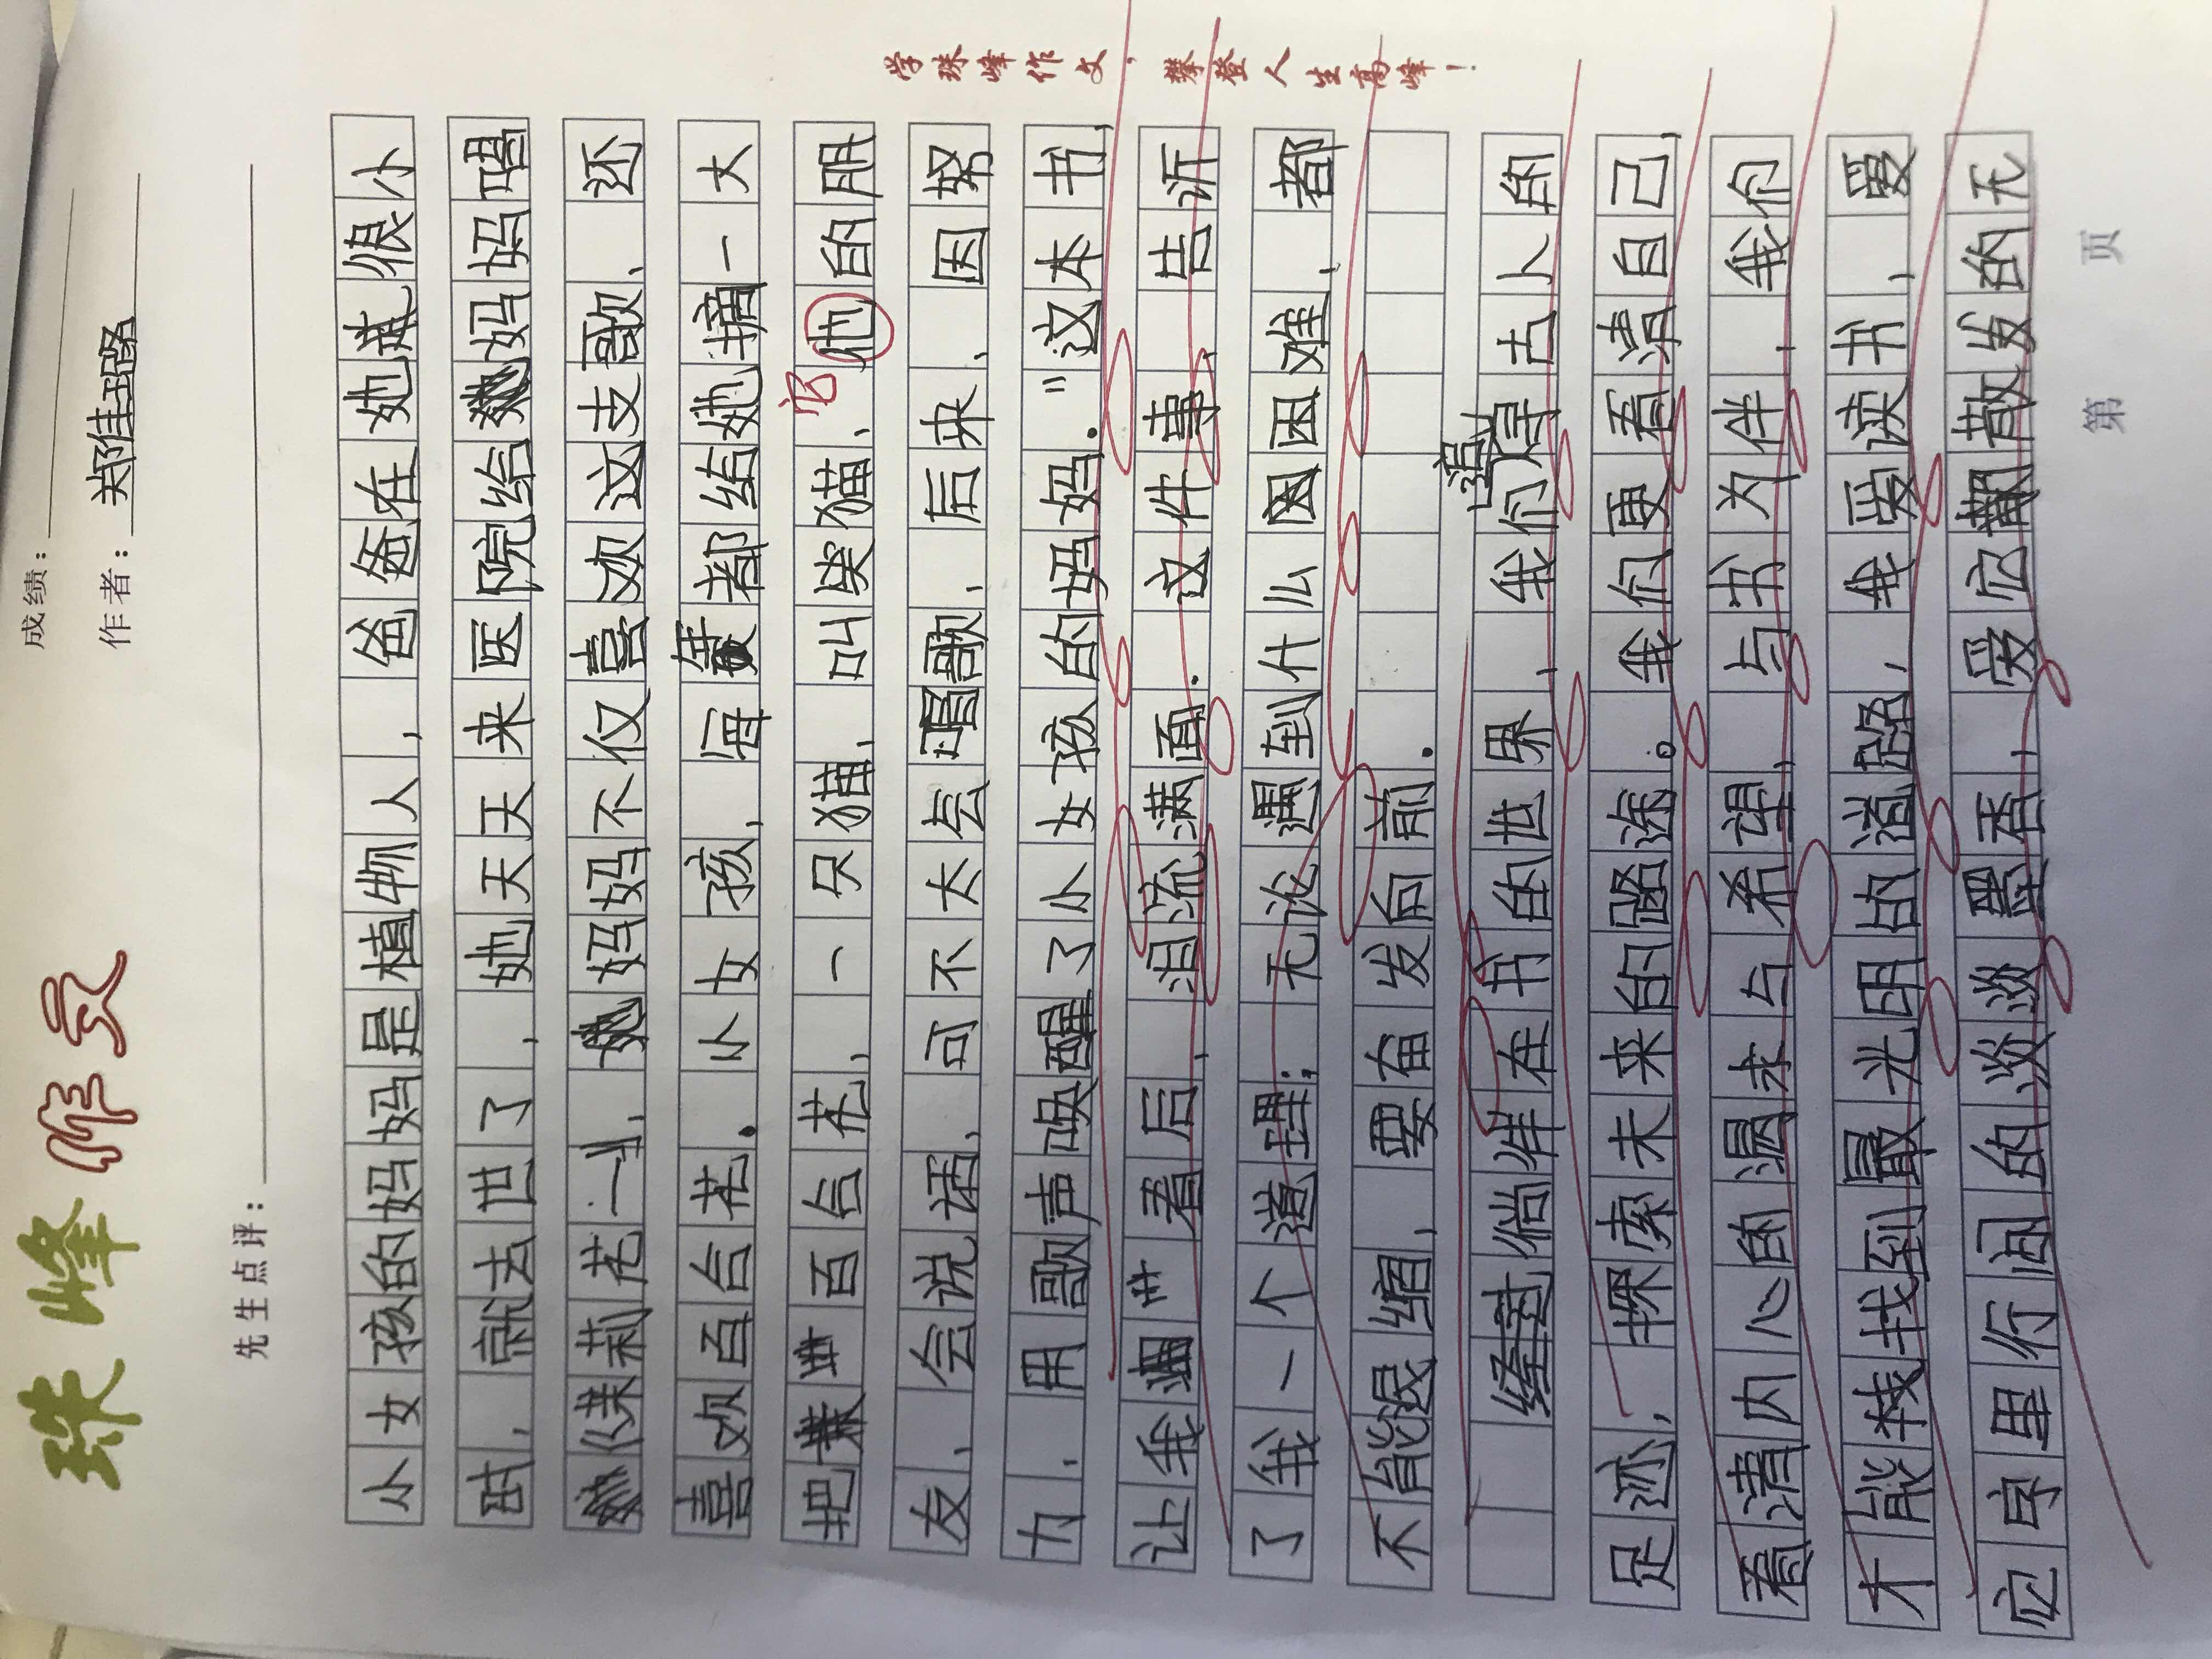 珠峰作文
成绩：
作者：郑佳璐
先生点评：
小女孩的妈妈是植物人，爸爸在她很小
时，就去世了，她天天来医院给妈妈唱
茉莉花》，妈妈不仅喜欢这支歌，还
喜欢百合花。小女孩，每年都给她摘一大
把百合花，一只猫，叫柴猫，他的朋
它
友，会说话，可不太会唱歌，后来，因努
力，用歌声唤醒了小女孩的妈妈。”这本书，
让我看后，泪流满面。这件事，告诉
了我一个道理：无论遇到什么困难，都
不能退缩，要奋发向前。
徜徉在书的世界，我们追寻古人的
足迹，探索未来的路途。我们更看清自己，
看清内心的渴求与希望，与书为伴，我们
才能找到最光明的道路，我爱读书，爱
它字里行间的淡淡墨香，爱它散发的无
第 页
学珠峰作文，攀登人生高峰！